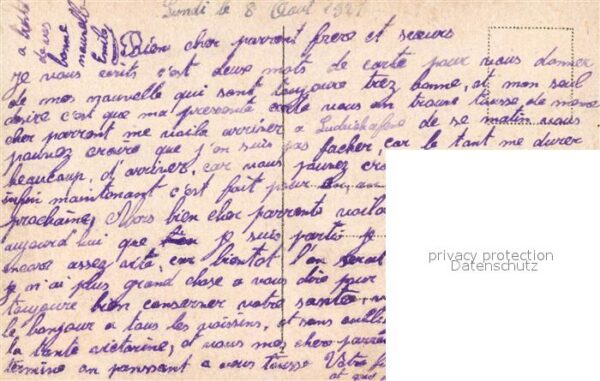 Lundi le 8 Aout 1921
a bientot
de vos
bonne
nouvelle
Emile
Bien cher parrent frere et sœurs
je vous ecrits c'est deuse mots de carte pour vous donner
de mes nouvelle qui sont toujoure trez bonne, et mon seul
desire c'est que ma presente carte vous en trouve tousse de meme
cher parrent me voila arriver a Ludwichafene de se matin vous
pouvez croire que j'en suis pas facher, car le tant me durer
beaucoup, d'arriver, car vous pouvez
infin maintenant c'est fait pour
prochaine, Alors bien cher parrents voila
aujourd'hui que je suis partis je
encore assez vite, car bientot l'on serat
je n'ai plus grand chose a vous dire pour
toujoure bien conserver votre santée
le bonjour a tous les voissins, et sans oublier
la tante victorine, et vous mes cher parren
termine en panssant a vous tousse Votre
et qui
privacy protection
Datenschutz